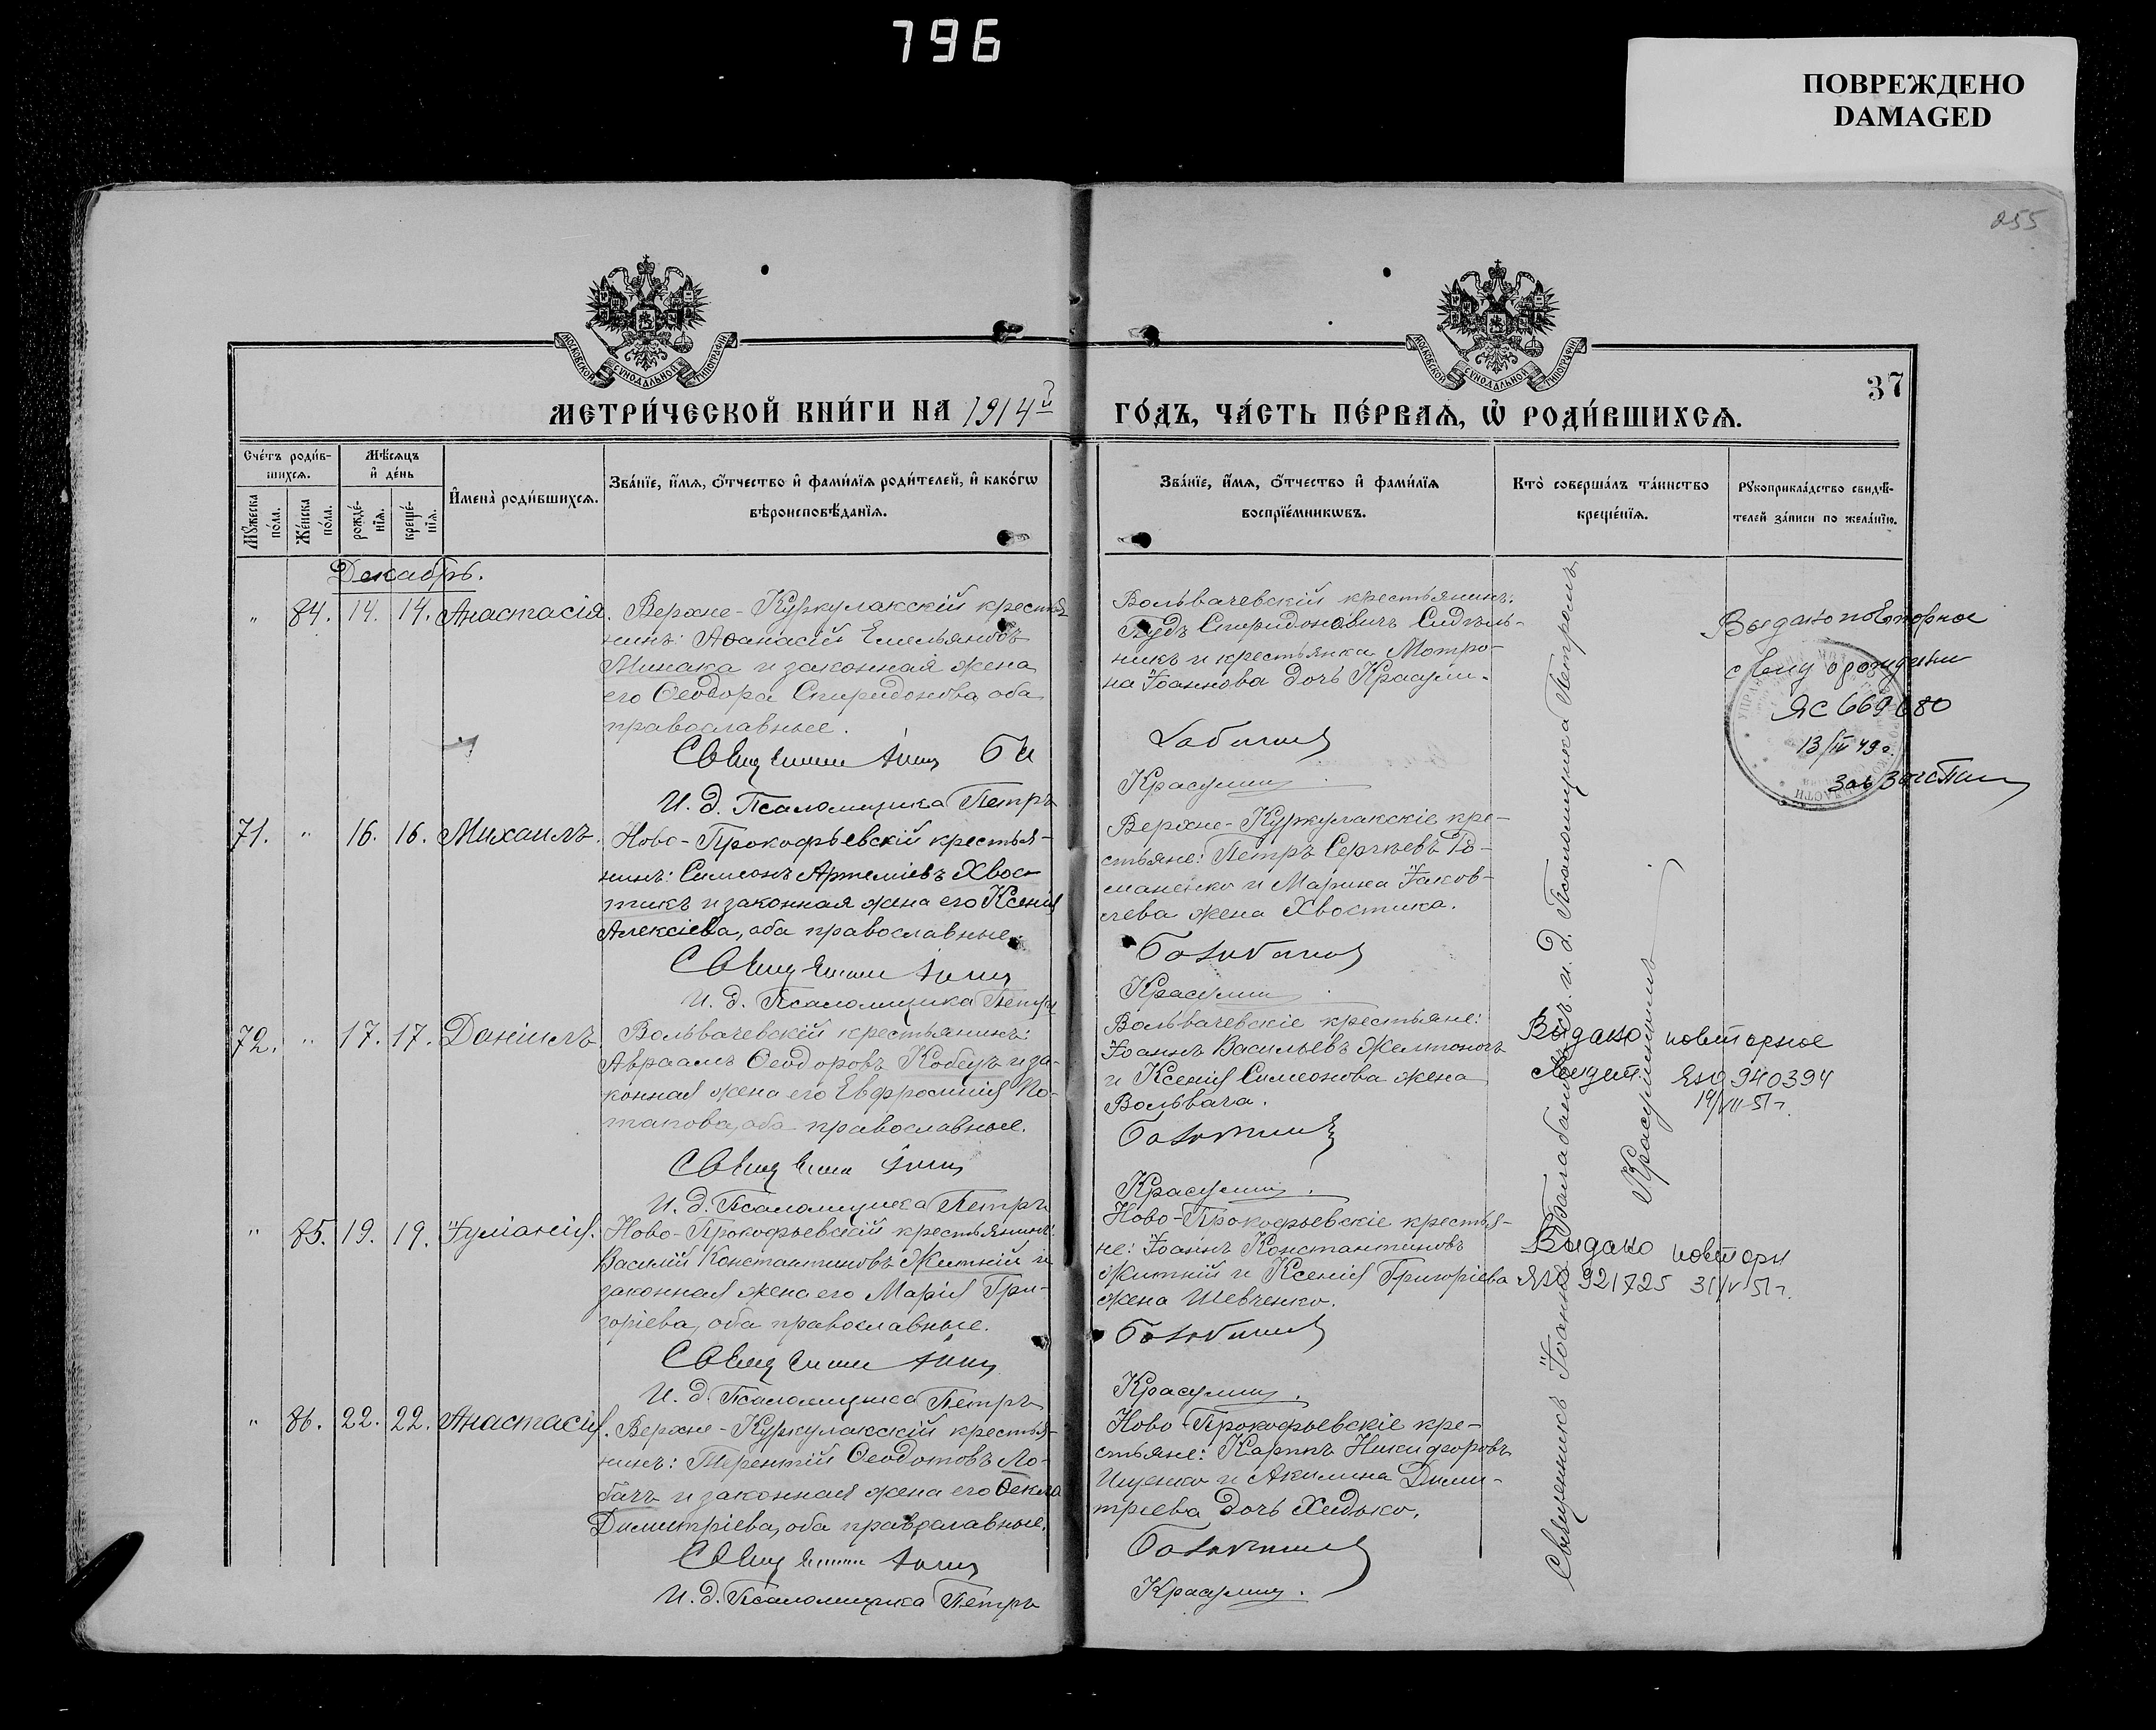 796
ПОВРЕЖДЕНО
DAMAGED
255
МОСКОВСКОЙ СѴНОДАЛЬНОЙ ТИПОГРАФІИ
МОСКОВСКОЙ СѴНОДАЛЬНОЙ ТИПОГРАФІИ
37
МЕТРИ́ЧЕСКОЙ КНИ́ГИ НА 1914й
ГО́ДЪ, ЧА́СТЬ ПЕ́РВАЯ, Ѡ РОДИ́ВШИХСѦ.
Сче́тъ роди́в-
шихся.
Мѣ́сяцъ
и де́нь
Му́жеска
по́ла.
Же́нска
по́ла.
рожде́-
нія.
креще́-
нія.
Имена̀ роди́вшихся.
Зва́нїе, и́мя, ѻ́тчество и фами́лїя роди́телей, и како́гѡ
вѣроисповѣ́данїя.
Зва́нїе, и́мя, ѻ́тчество и фами́лїя
воспрїе́мникѡвъ.
Кто̀ соверша́лъ та́инство
креще́нїя.
Рꙋкоприкла́дство свидѣ́-
телей за́писи по жела́нїю.
Декабрь.
" 84. 14. 14. Анастасія.
Верхне-Куркулакскій крестья-
нинъ: Аѳанасій Емельяновъ
Минака и законная жена
его Ѳеодора Спиридонова, оба
православные.
И. д. Псаломщика Петръ
Вольвачевскій крестьянинъ:
Іудъ Спиридоновичъ Сидѣль-
никъ и крестьянка Матро-
на Іоаннова дочь Красули.
Красулинъ
Выдано повторное
с-во о рождении
ЯС 669680
13/IV 49 г.
71. " 16. 16. Михаилъ.
Ново-Прокофьевскій крестья-
нинъ: Симеонъ Артеміевъ Хвос-
тикъ и законная жена его Ксенія
Алексіева, оба православные.
И. д. Псаломщика Петръ
Верхне-Куркулакскіе кре-
стьяне: Петръ Сергѣевъ Ро-
маненко и Марина Іаков-
лева жена Хвостика.
Красулинъ
72. " 17. 17. Даніилъ
Вольвачевскій крестьянинъ:
Авраамъ Ѳеодоровъ Кобецъ и за-
конная жена его Евфросинія По-
тапова, оба православные.
И. д. Псаломщика Петръ
Вольвачевскіе крестьяне:
Іоаннъ Васильевъ Желтоногъ
и Ксенія Симеонова жена
Вольвача.
Красулинъ.
Выдано повторное
940394
19/VII-51 г.
" 85. 19. 19. Іуліанія.
Ново-Прокофьевскій крестьянинъ:
Василій Константиновъ Житній и
законная жена его Марія Гри-
горіева, оба православные.
И. д. Псаломщика Петръ
Ново-Прокофьевскіе крестья-
не: Іоаннъ Константиновъ
Житній и Ксенія Григоріева
жена Шевченко.
Красулинъ.
Выдано повторн
921725 31/V-51 г.
" 86. 22. 22. Анастасія.
Верхне-Куркулакскій крестья-
нинъ: Терентій Ѳеодотовъ Ло-
бачъ и законная жена его Ѳекла
Димитріева, оба православные.
И. д. Псаломщика Петръ
Ново-Прокофьевскіе кре-
стьяне: Карпъ Никифоровъ
Ищенко и Акилина Дими-
тріева дочь Хидько.
Красулинъ.
Священникъ Іоаннъ Балабановъ и. д. Псаломщика Петръ
Красулинъ